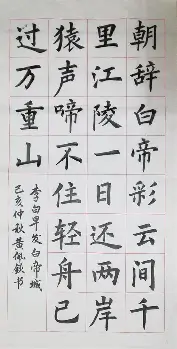 朝辞白帝彩云间千
里江陵一日还两岸
猿声啼不住轻舟已
过万重山
李白早发白帝城
己亥仲秋黄郁钦书